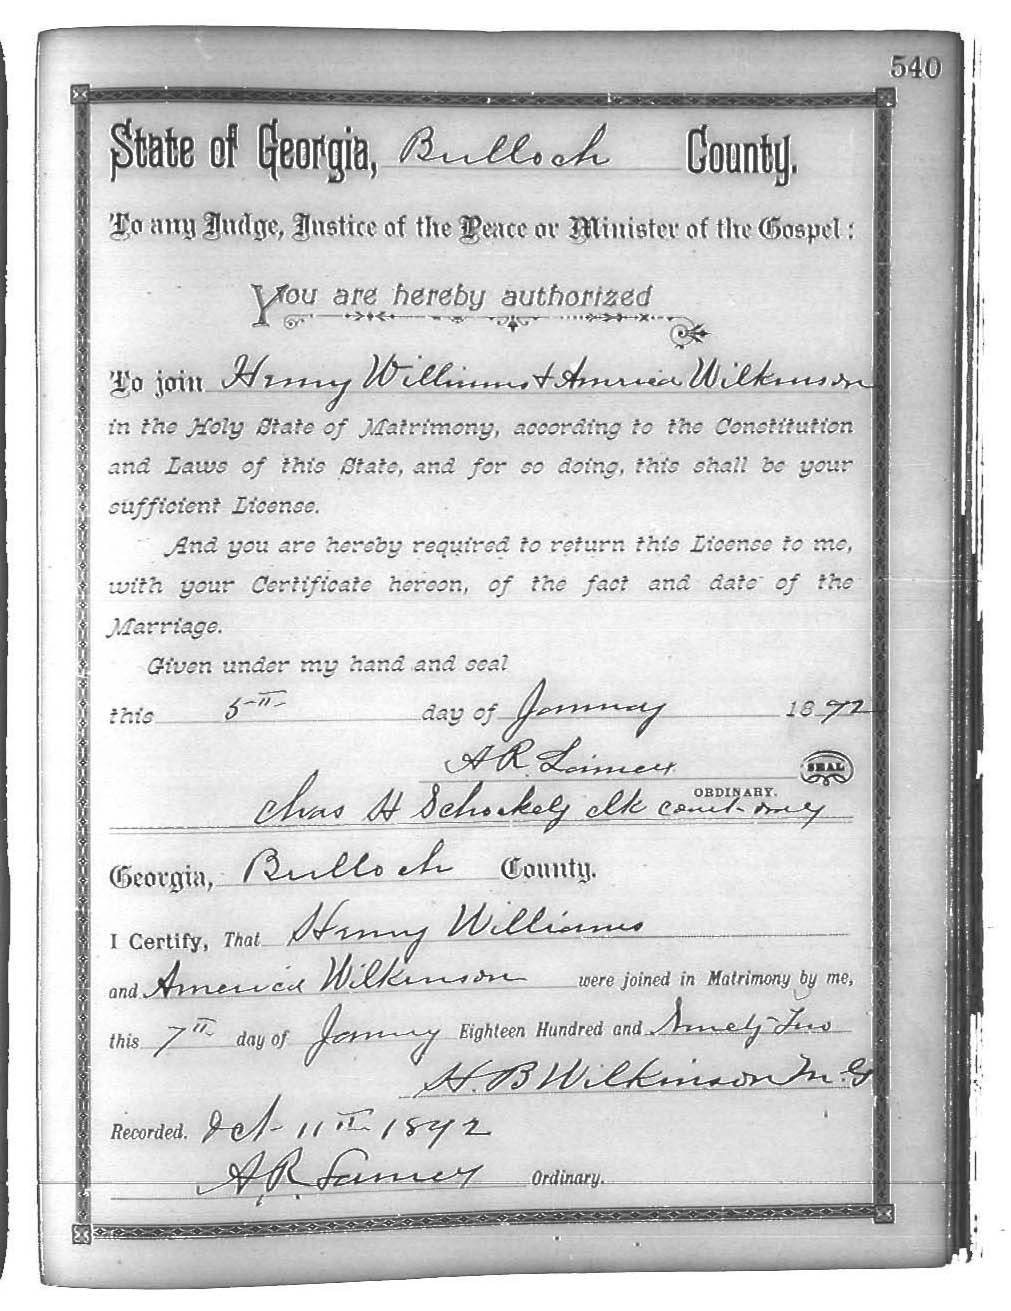 540
State of Georgia, Bulloch County.
To any Judge, Justice of the Peace or Minister of the Gospel:
You are hereby authorized
To join Henry Williams & America Wilkinson
in the Holy State of Matrimony, according to the Constitution
and Laws of this State, and for so doing, this shall be your
sufficient License.
And you are hereby required to return this License to me,
with your Certificate hereon, of the fact and date of the
Marriage.
Given under my hand and seal
this 5th day of January 1892
A R Lanier SEAL
ORDINARY.
Chas H Schockely clk court
Georgia, Bulloch County.
I Certify, That Henry Williams
and America Wilkinson were joined in Matrimony by me,
this 7th day of Eighteen Hundred and Ninety Two
H. B Wilkinson M. G
Recorded. Oct 11th 1892
A R Lanier Ordinary.